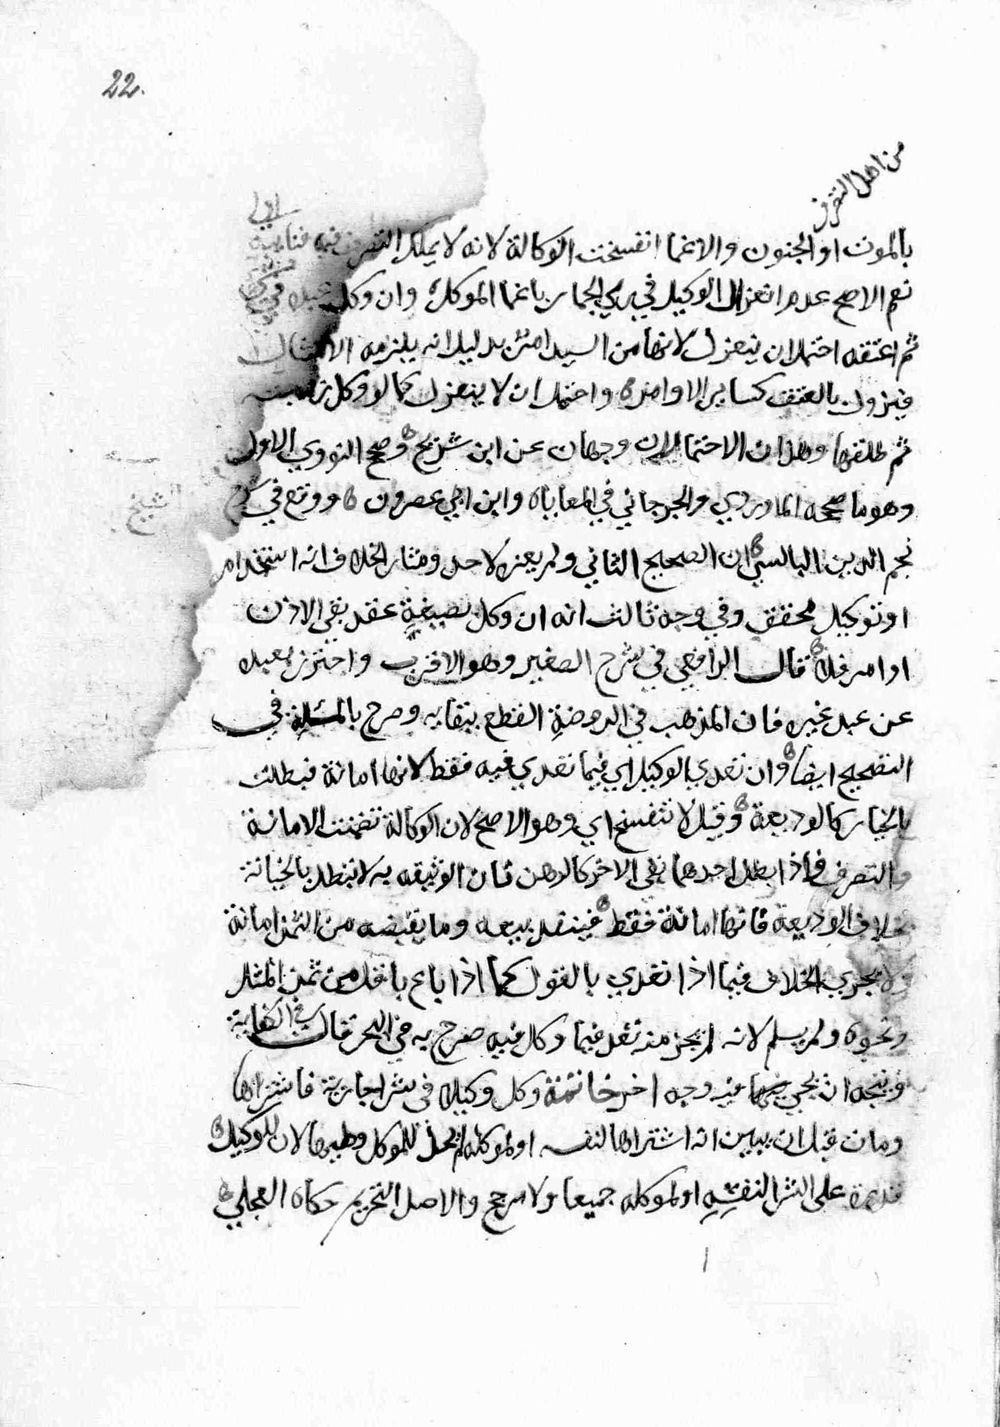 22.
من اهل التصرف
بالموت او الجنون والاغما انفسخت الوكالة لانه لا يملك التصرف فيه فنايبه اولى
نعم الاصح عدم انعزال الوكيل في رمي الجمار باغما الموكل وان وكل عبده في
ثم اعتقه احتمل ان ينعزل لانها من السيد امر بدليل انه يلزمه الامتثال
فيزول بالعتق كساير الاوامر واحتمل ان لا ينعزل كما لو وكل زوجته
ثم طلقها وهذان الاحتمالان وجهان عن ابن شريح وصحح النووي الاول
وهو ما صححه الماوردي والجرجاني في المعاياه وابن ابي عصرون ووقع في
نجم الدين البالسي ان الصحيح الثاني ولم يعزه لاحد ومثار الخلاف انه استخدام
او توكيل محقق وفي وجه ثالث انه ان وكل بصيغة عقد بقي الاذن
او امر فلا قال الرافعي في شرح الصغير وهو الاقرب واحترز بعبده
عن عبد غيره فان المذهب في الروضة القطع ببقايه وصرح بالمسئلة في
التصحيح ايضا وان تعدي الوكيل اي فيما تعدي فيه فقط لانها امانة فبطلت
بالخيار كالوديعة وقيل لا تنفسخ اي وهو الاصح لان الوكالة تضمنت الامانة
والتصرف فاذا بطل احدهما بقي الاخر كالرهن فان الوثيقه به لا تبطل بالخيانة
بخلاف الوديعة فانها امانة فقط فينفذ بيعه وما يقبضه من الثمن امانة
ولا يجري الخلاف فيما اذا تعدي بالقول كما اذا باع باقل من ثمن المثل
ونحوه ولم يسلم لانه لم يجز منه تعد فيما وكل فيه صرح به في البحر قال في الكفاية
ويتجه ان يجي فيه وجه اخر خاتمة وكل وكيلا في شرا جارية فاشتراها
ومات قبل ان يبين انه اشتراها لنفسه او لموكله لم يحل للموكل وطيها لان للوكيل
قدرة على الشرا لنفسه او لموكله جميعا ولا مرجح والاصل التحريم حكاه العجلي